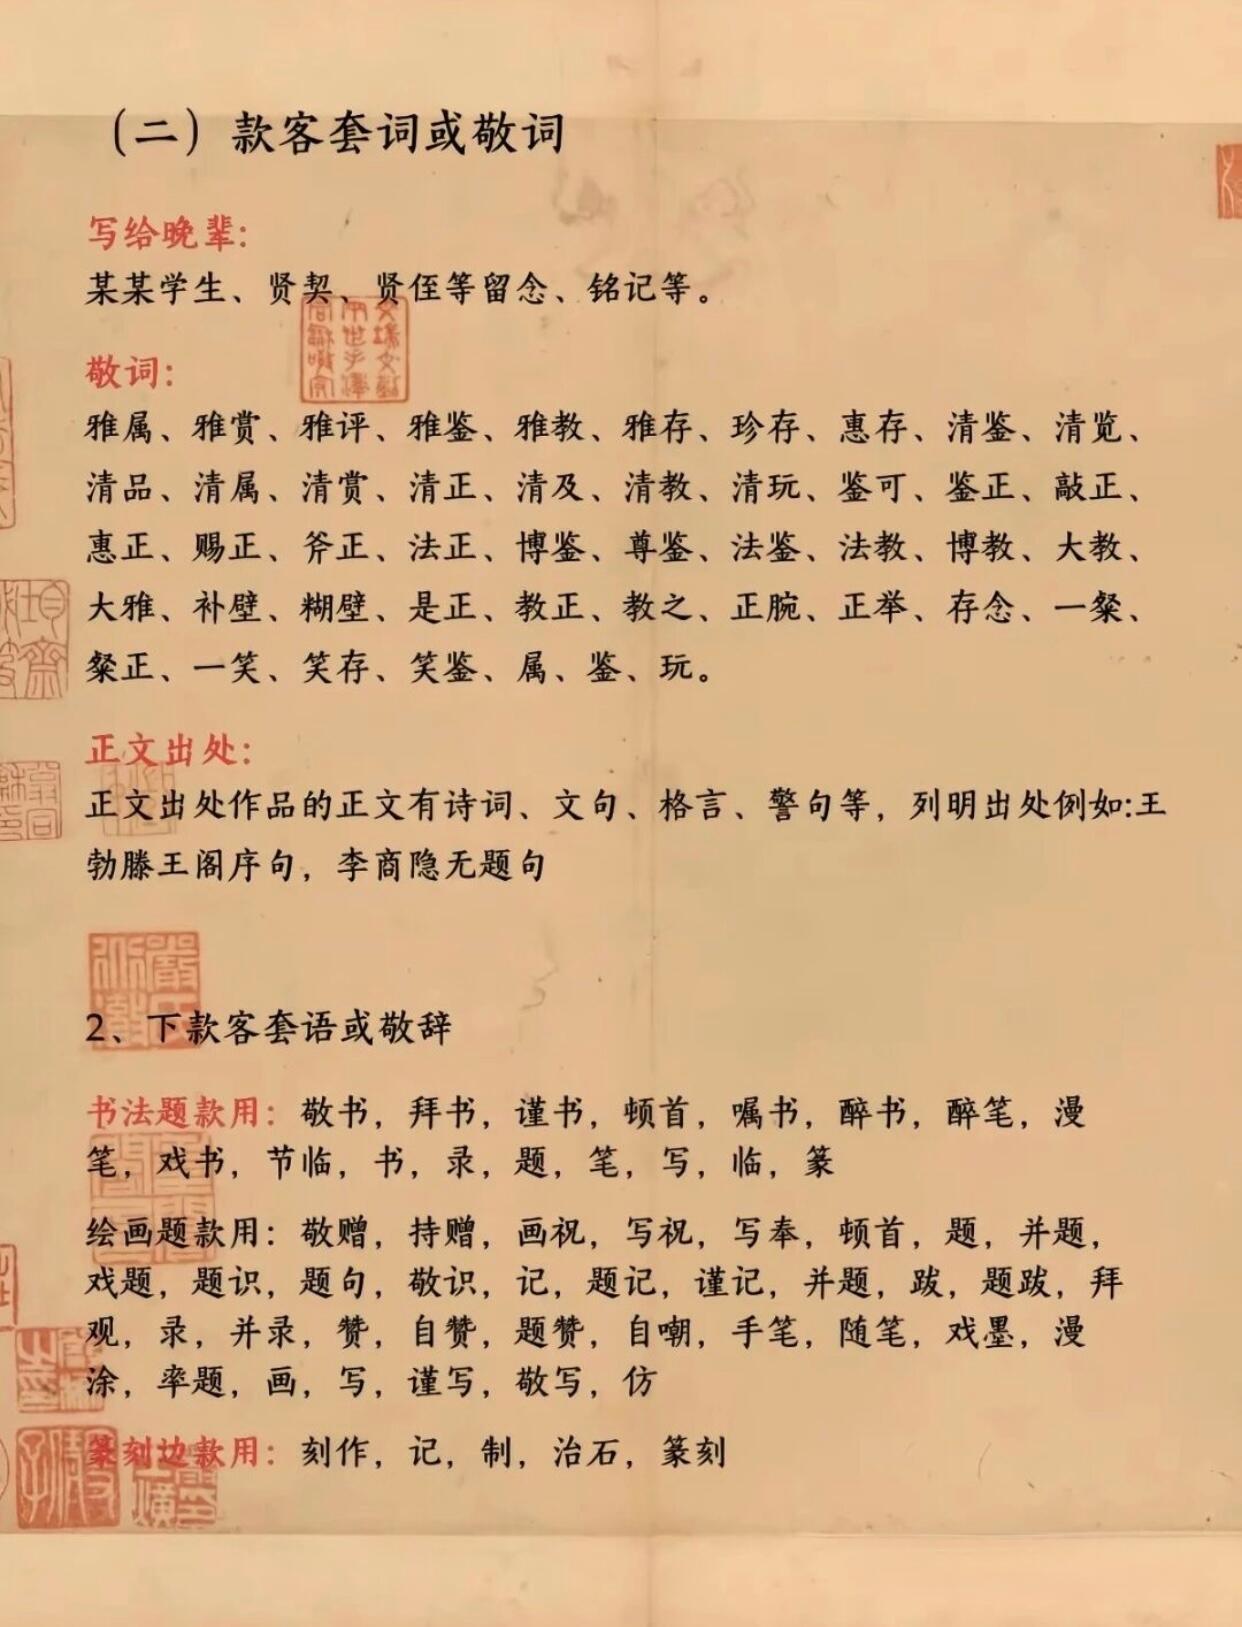 （二）款客套词或敬词
写给晚辈：
某某学生、贤契、贤侄等留念、铭记等。
敬词：
雅属、雅赏、雅评、雅鉴、雅教、雅存、珍存、惠存、清鉴、清览、
清品、清属、清赏、清正、清及、清教、清玩、鉴可、鉴正、敲正、
惠正、赐正、斧正、法正、博鉴、尊鉴、法鉴、法教、博教、大教、
大雅、补壁、糊壁、是正、教正、教之、正腕、正举、存念、一粲、
粲正、一笑、笑存、笑鉴、属、鉴、玩。
正文出处：
正文出处作品的正文有诗词、文句、格言、警句等，列明出处例如:王
勃滕王阁序句，李商隐无题句
2、下款客套语或敬辞
书法题款用：敬书，拜书，谨书，顿首，嘱书，醉书，醉笔，漫
笔，戏书，节临，书，录，题，笔，写，临，篆
绘画题款用：敬赠，持赠，画祝，写祝，写奉，顿首，题，并题，
戏题，题识，题句，敬识，记，题记，谨记，并题，跋，题跋，拜
观，录，并录，赞，自赞，题赞，自嘲，手笔，随笔，戏墨，漫
涂，率题，画，写，谨写，敬写，仿
篆刻边款用：刻作，记，制，治石，篆刻